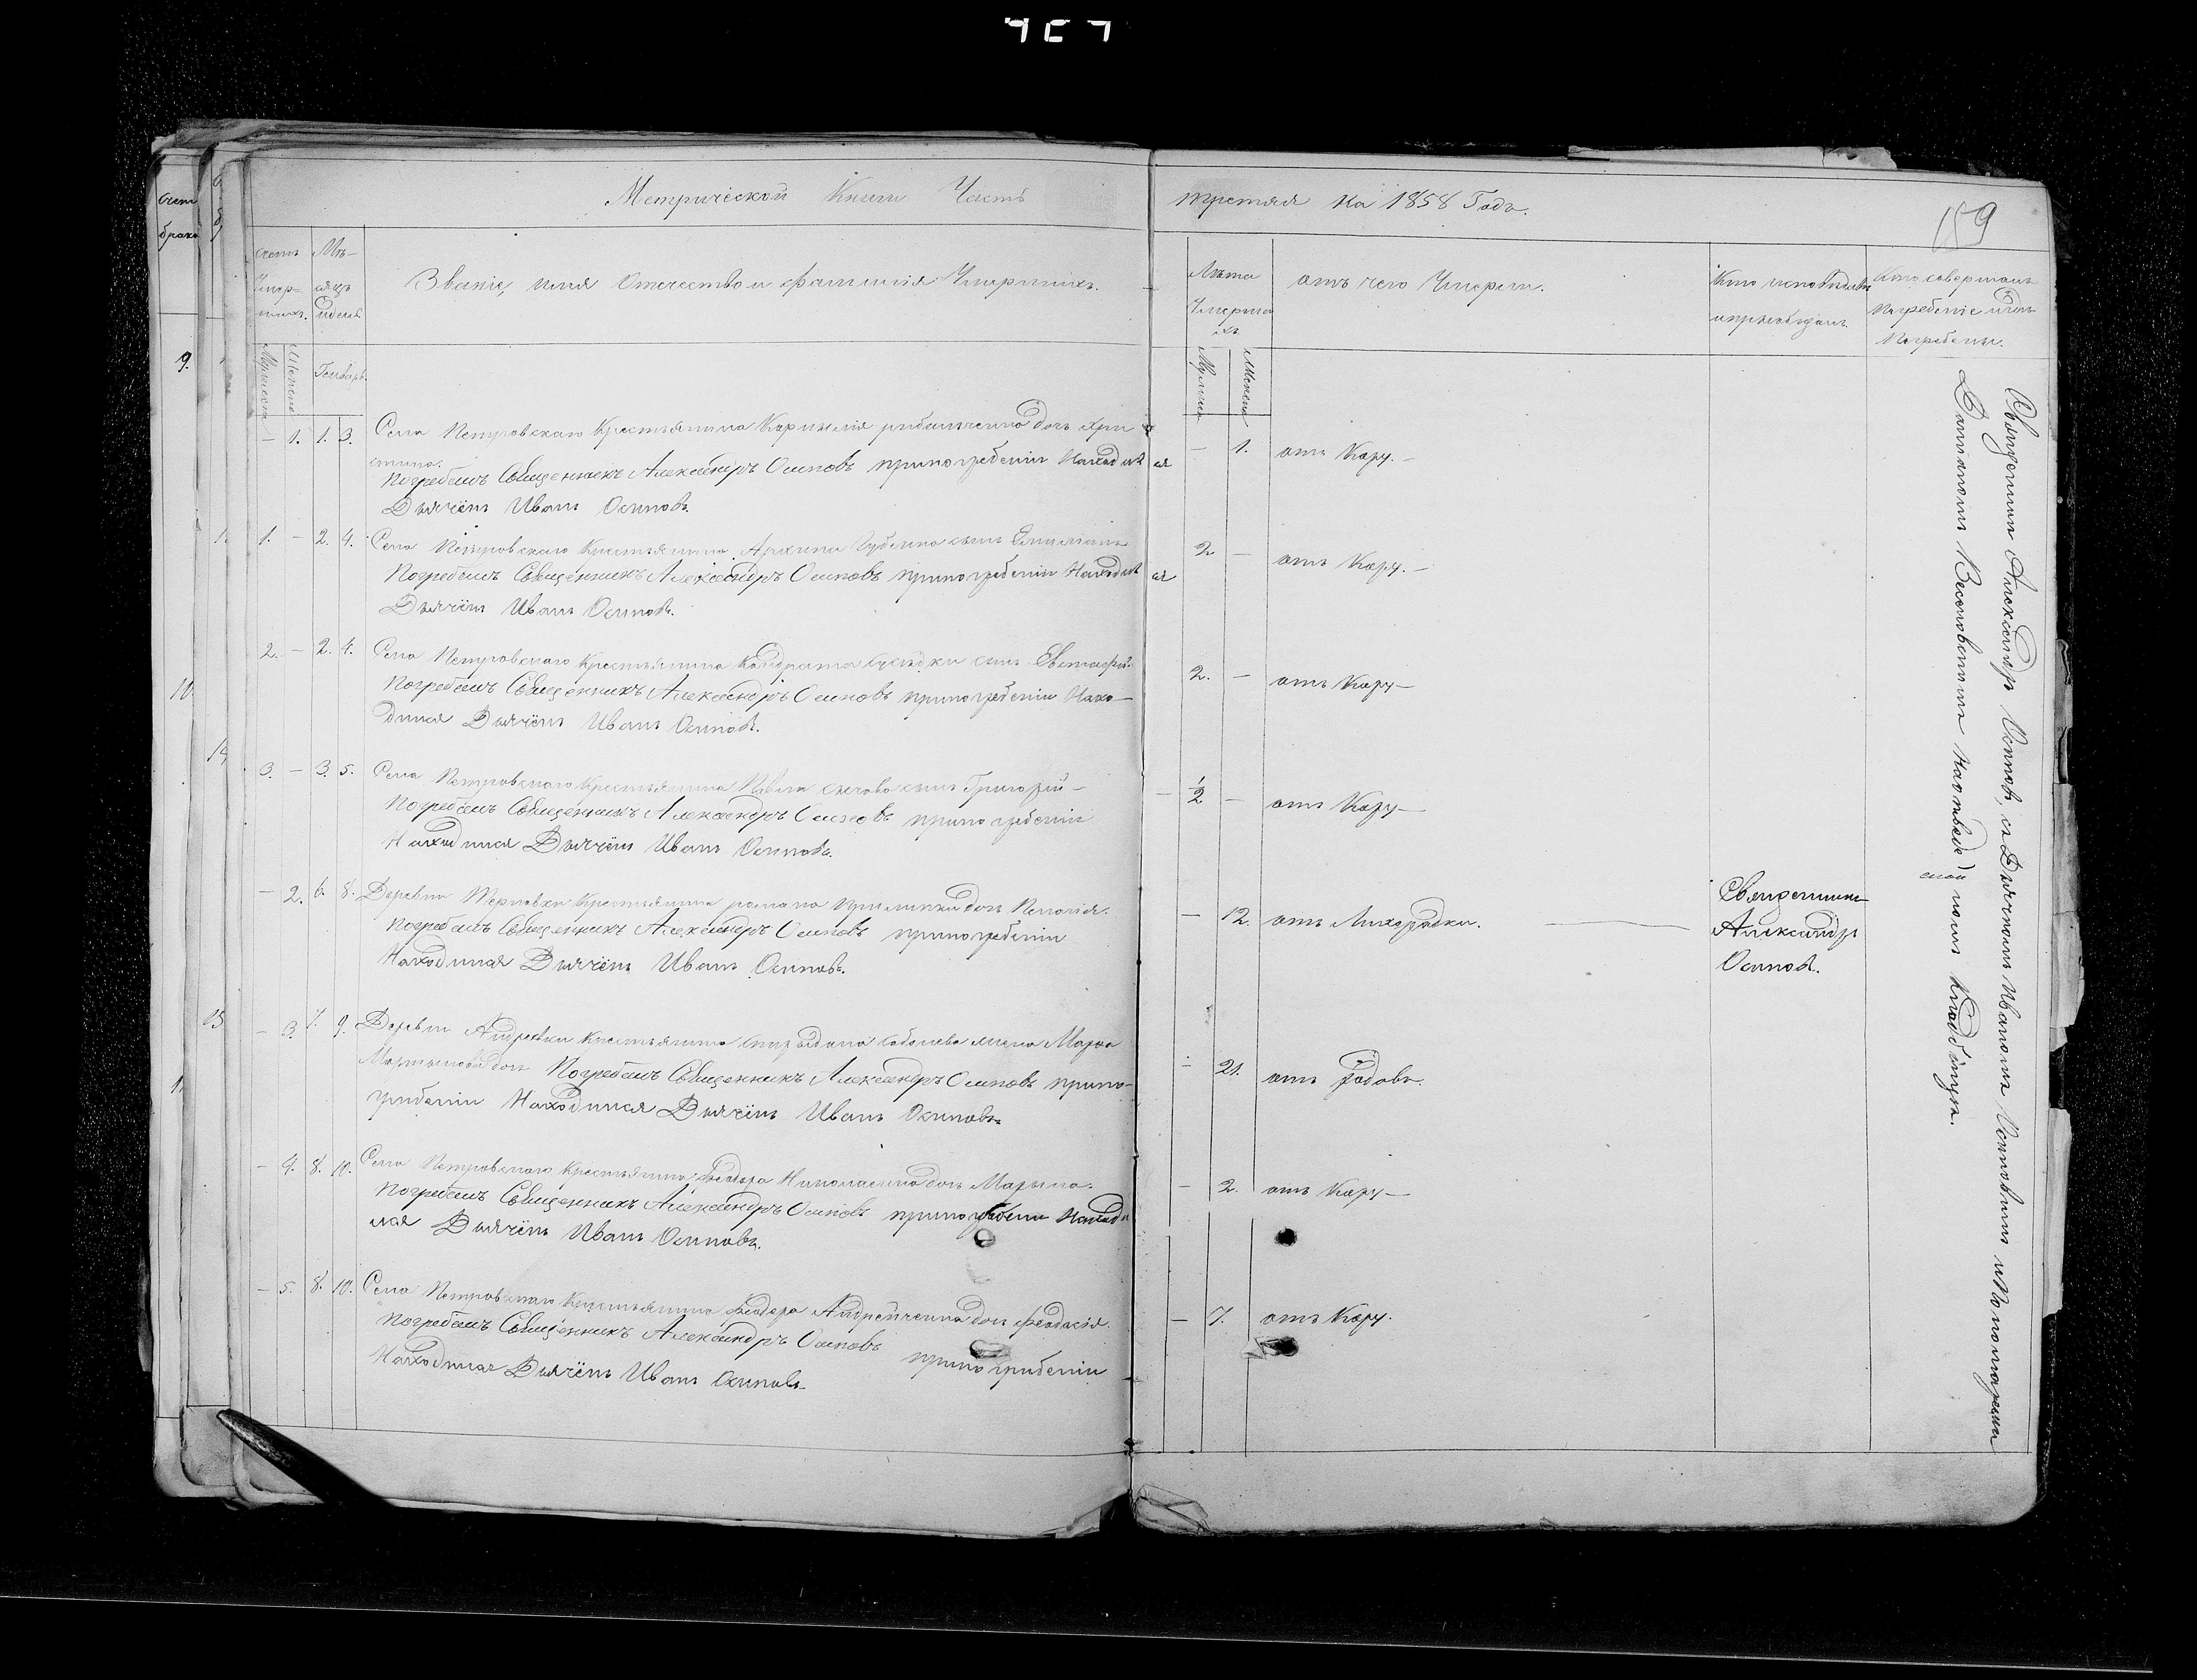 Метрической Книги Часть
третяя на 1858 Годъ.
159
Счетъ Умер-шихъ.
Мѣ-сяцъ и день
Званіе, имя Отечество и фамилія Умершихъ.
Лѣта Умерших
отъ чего Умерли.
Кто исповѣдывалъ и пріобщалъ.
Кто совершалъ Погребеніе и гдѣ Погребены.
Мужеска
Женска
Генварь.
Мужеска
Женска
— 1. 1. 3. Села Петровскаго Крестьянина Корнилія дочь Хри
стина.
Погребалъ Священникъ Александръ Осиповъ при погребеніи Находился
Дьячёкъ Иванъ Осиповъ.
— 1. отъ Кору. —
1. — 2. 4. Села Петровскаго Крестьянина Архипа сынъ Емиліанъ
Погребалъ Священникъ Александръ Осиповъ при погребеніи Находился
Дьячёкъ Иванъ Осиповъ.
2 — отъ Кору. —
2. — 2. 4. Села Петровскаго Крестьянина Кондрата сынъ Евстафій
Погребалъ Священникъ Александръ Осиповъ при погребеніи Нахо—
дился Дьячёкъ Иванъ Осиповъ.
2. — отъ Кору —
3. — 3. 5. Села Петровскаго Крестьянина Павла сынъ Григорій —
Погребалъ Священникъ Александръ Осиповъ при погребеніи
Находился Дьячёкъ Иванъ Осиповъ.
— 1/2 — отъ Кору —
— 2. 6. 8. Деревни Терновки Крестьянина романа дочь Пелагія.
Погребалъ Священникъ Александръ Осиповъ при погребеніи
Находился Дьячёкъ Иванъ Осиповъ.
— 12. отъ Лихорадки.
Священникъ
Александръ
Осиповъ.
— 3 7. 9. Деревни Андревки Крестьянина спирыдона соболева жена Марфа
Мартынова дочь Погребалъ Священникъ Александръ Осиповъ при по-
грибеніи Находился Дьячёкъ Иванъ Осиповъ.
— 21. отъ родовъ.
— 4. 8. 10. Села Петровскаго Крестьянина Феодора дочь Марына.
Погребалъ Священникъ Александръ Осиповъ при погребении Находи
лся Дьячёкъ Иванъ Осиповъ.
— 2. отъ Кору —
— 5. 8. 10. Села Петровскаго Крестьянина Феодора Андрейченка дочь Феодосія.
Погребалъ Священникъ Александръ Осиповъ при погрибеніи
Находился Дьячёкъ Иванъ Осиповъ
— 7. отъ Кору.
Священникъ Александръ Осиповъ, съ Дьячкомъ Иваномъ Осиповымъ и Пономаремъ
на отведе
номъ Кладбищѣ.